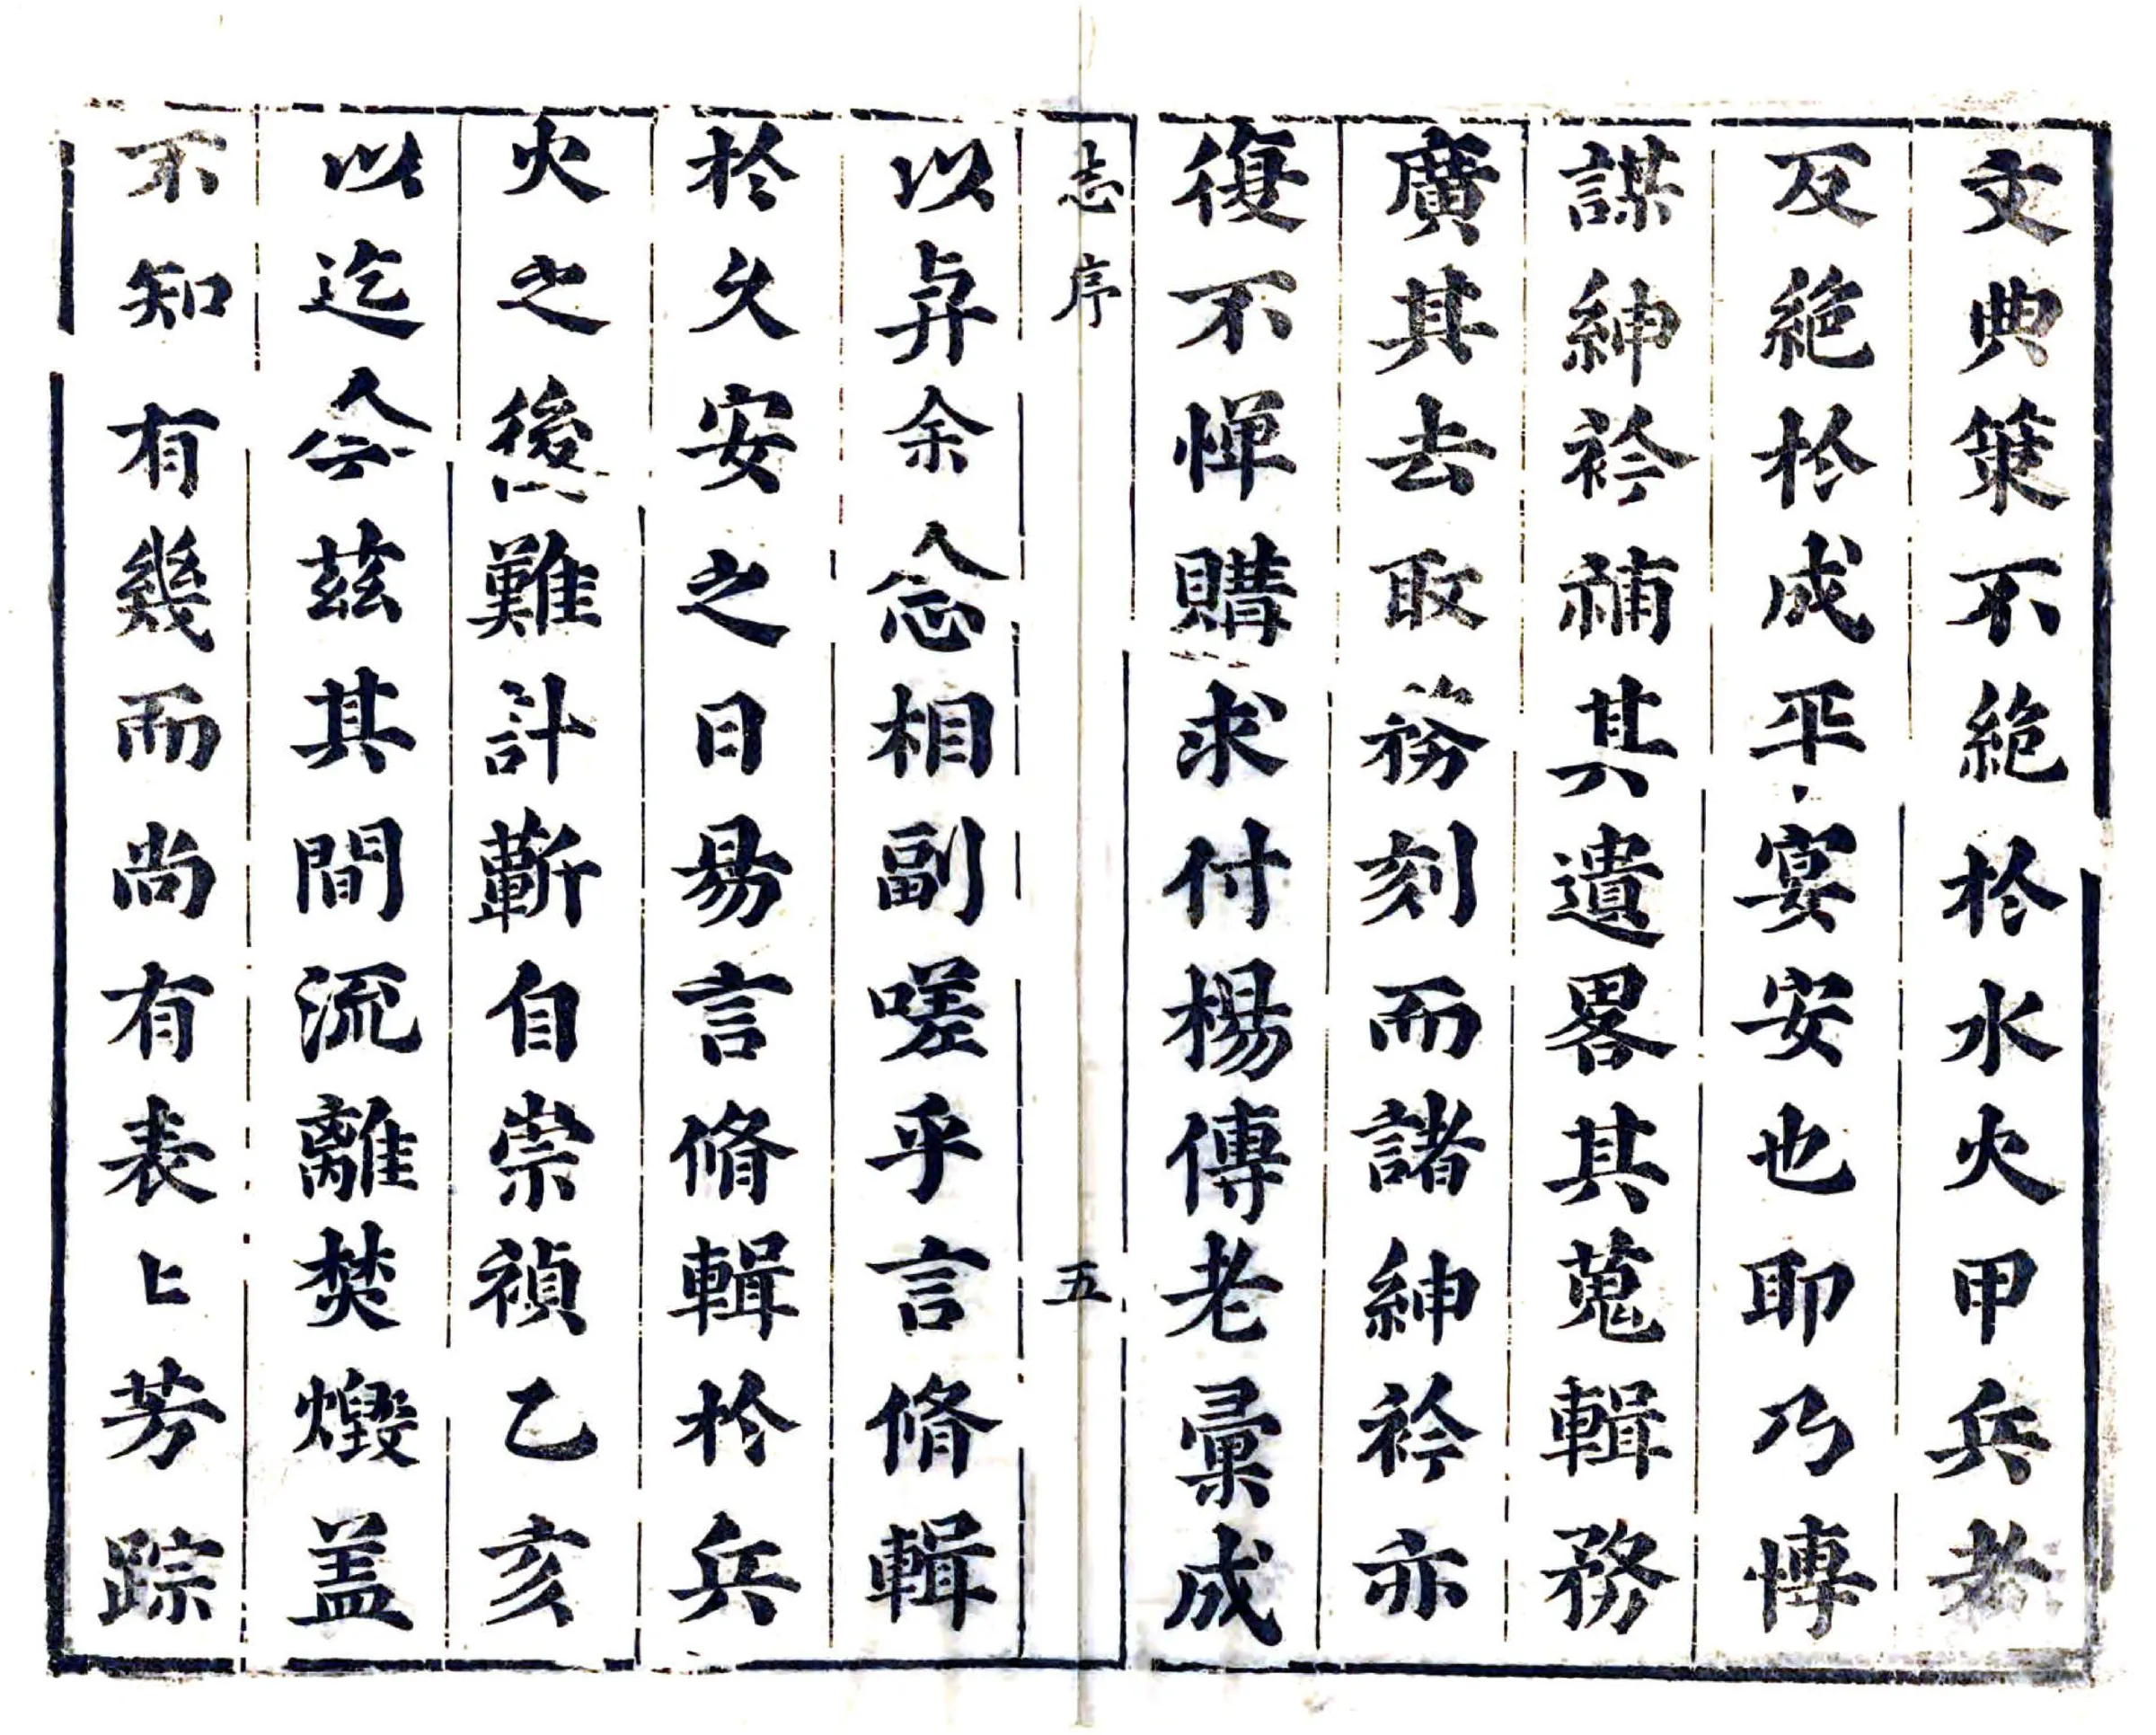 文典策不絶於水火甲兵者
反絶於成平宴安也耶乃博
謀紳衿補其遺畧其蒐輯務
廣其去取務刻而諸紳衿亦
復不憚購求付楊傅老彙成
志序 五
以弁余念相副嗟乎言脩輯
於久安之日易言脩輯於兵
火之後難計蘄自崇禎乙亥
以迄今茲其間流離焚燬蓋
不知有幾而尚有表〻芳踪